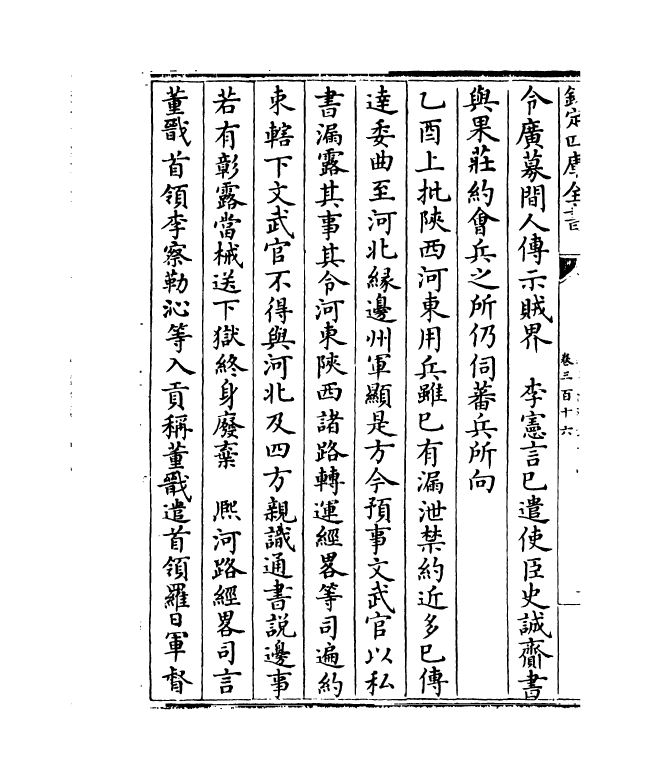 欽定四庫全書
卷三百十六
令廣募間人傳示賊界　李憲言已遣使臣史誠齎書
與果莊約會兵之所仍伺蕃兵所向
乙酉上批陝西河東用兵雖已有漏泄禁約近多已傳
達委曲至河北緣邊州軍顯是方今預事文武官以私
書漏露其事其令河東陝西諸路轉運經畧等司遍約
束轄下文武官不得與河北及四方親識通書説邊事
若有彰露當械送下獄終身廢棄　熙河路經畧司言
董戩首領李察勒沁等入貢稱董戩遣首領羅日軍督